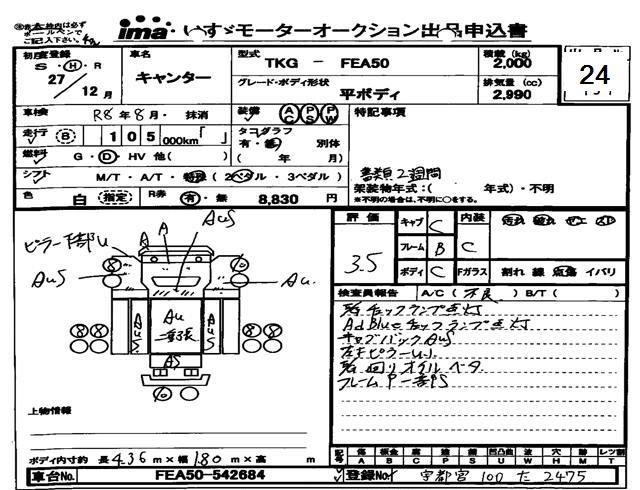 太枠内は必ずボールペンでご記入下さい。
ima いすゞモーターオークション出品申込書
初度登録 S・H・R 27年 12月
車名 キャンター
型式 TKG - FEA50
積載 (kg) 2,000
24
グレード・ボディ形状 平ボディ
排気量 (cc) 2,990
車検 R8年8月・抹消
装備 AC PS PW
特記事項
走行 B 105 000km「 」
タコグラフ 有・無 別体 ( 年 月)
燃料 G・D・HV 他( )
書類2週間
シフト M/T・A/T・特殊 (2ペダル・3ペダル)
架装物年式:( 年式)・不明
※不明の場合は、不明に○をする。
色 白 指定
R券 有・無 8,830 円
評価 3.5
キャブ C
内装 C
フレーム B
ボディ C
Fガラス 割れ 線 点傷 イバリ
ピラー下部U
A A AuS
AuS Au
Au
AS
検査員報告 A/C (不良) B/T ( )
チェックランプ点灯
AdBlueチェックランプ点灯
キャブバックAuS
左右ピラーU
回りオイルベタ
フレーム
上物情報
ボディ内寸約 長 4.36 m × 幅 1.80 m × 高 m
記号 傷A 板金B 腐C 塗P 錆S 凹凸曲U 波W 穴H 跡M レンズ割T
車台No. FEA50-542684
登録No. 宇都宮 100 た 2475